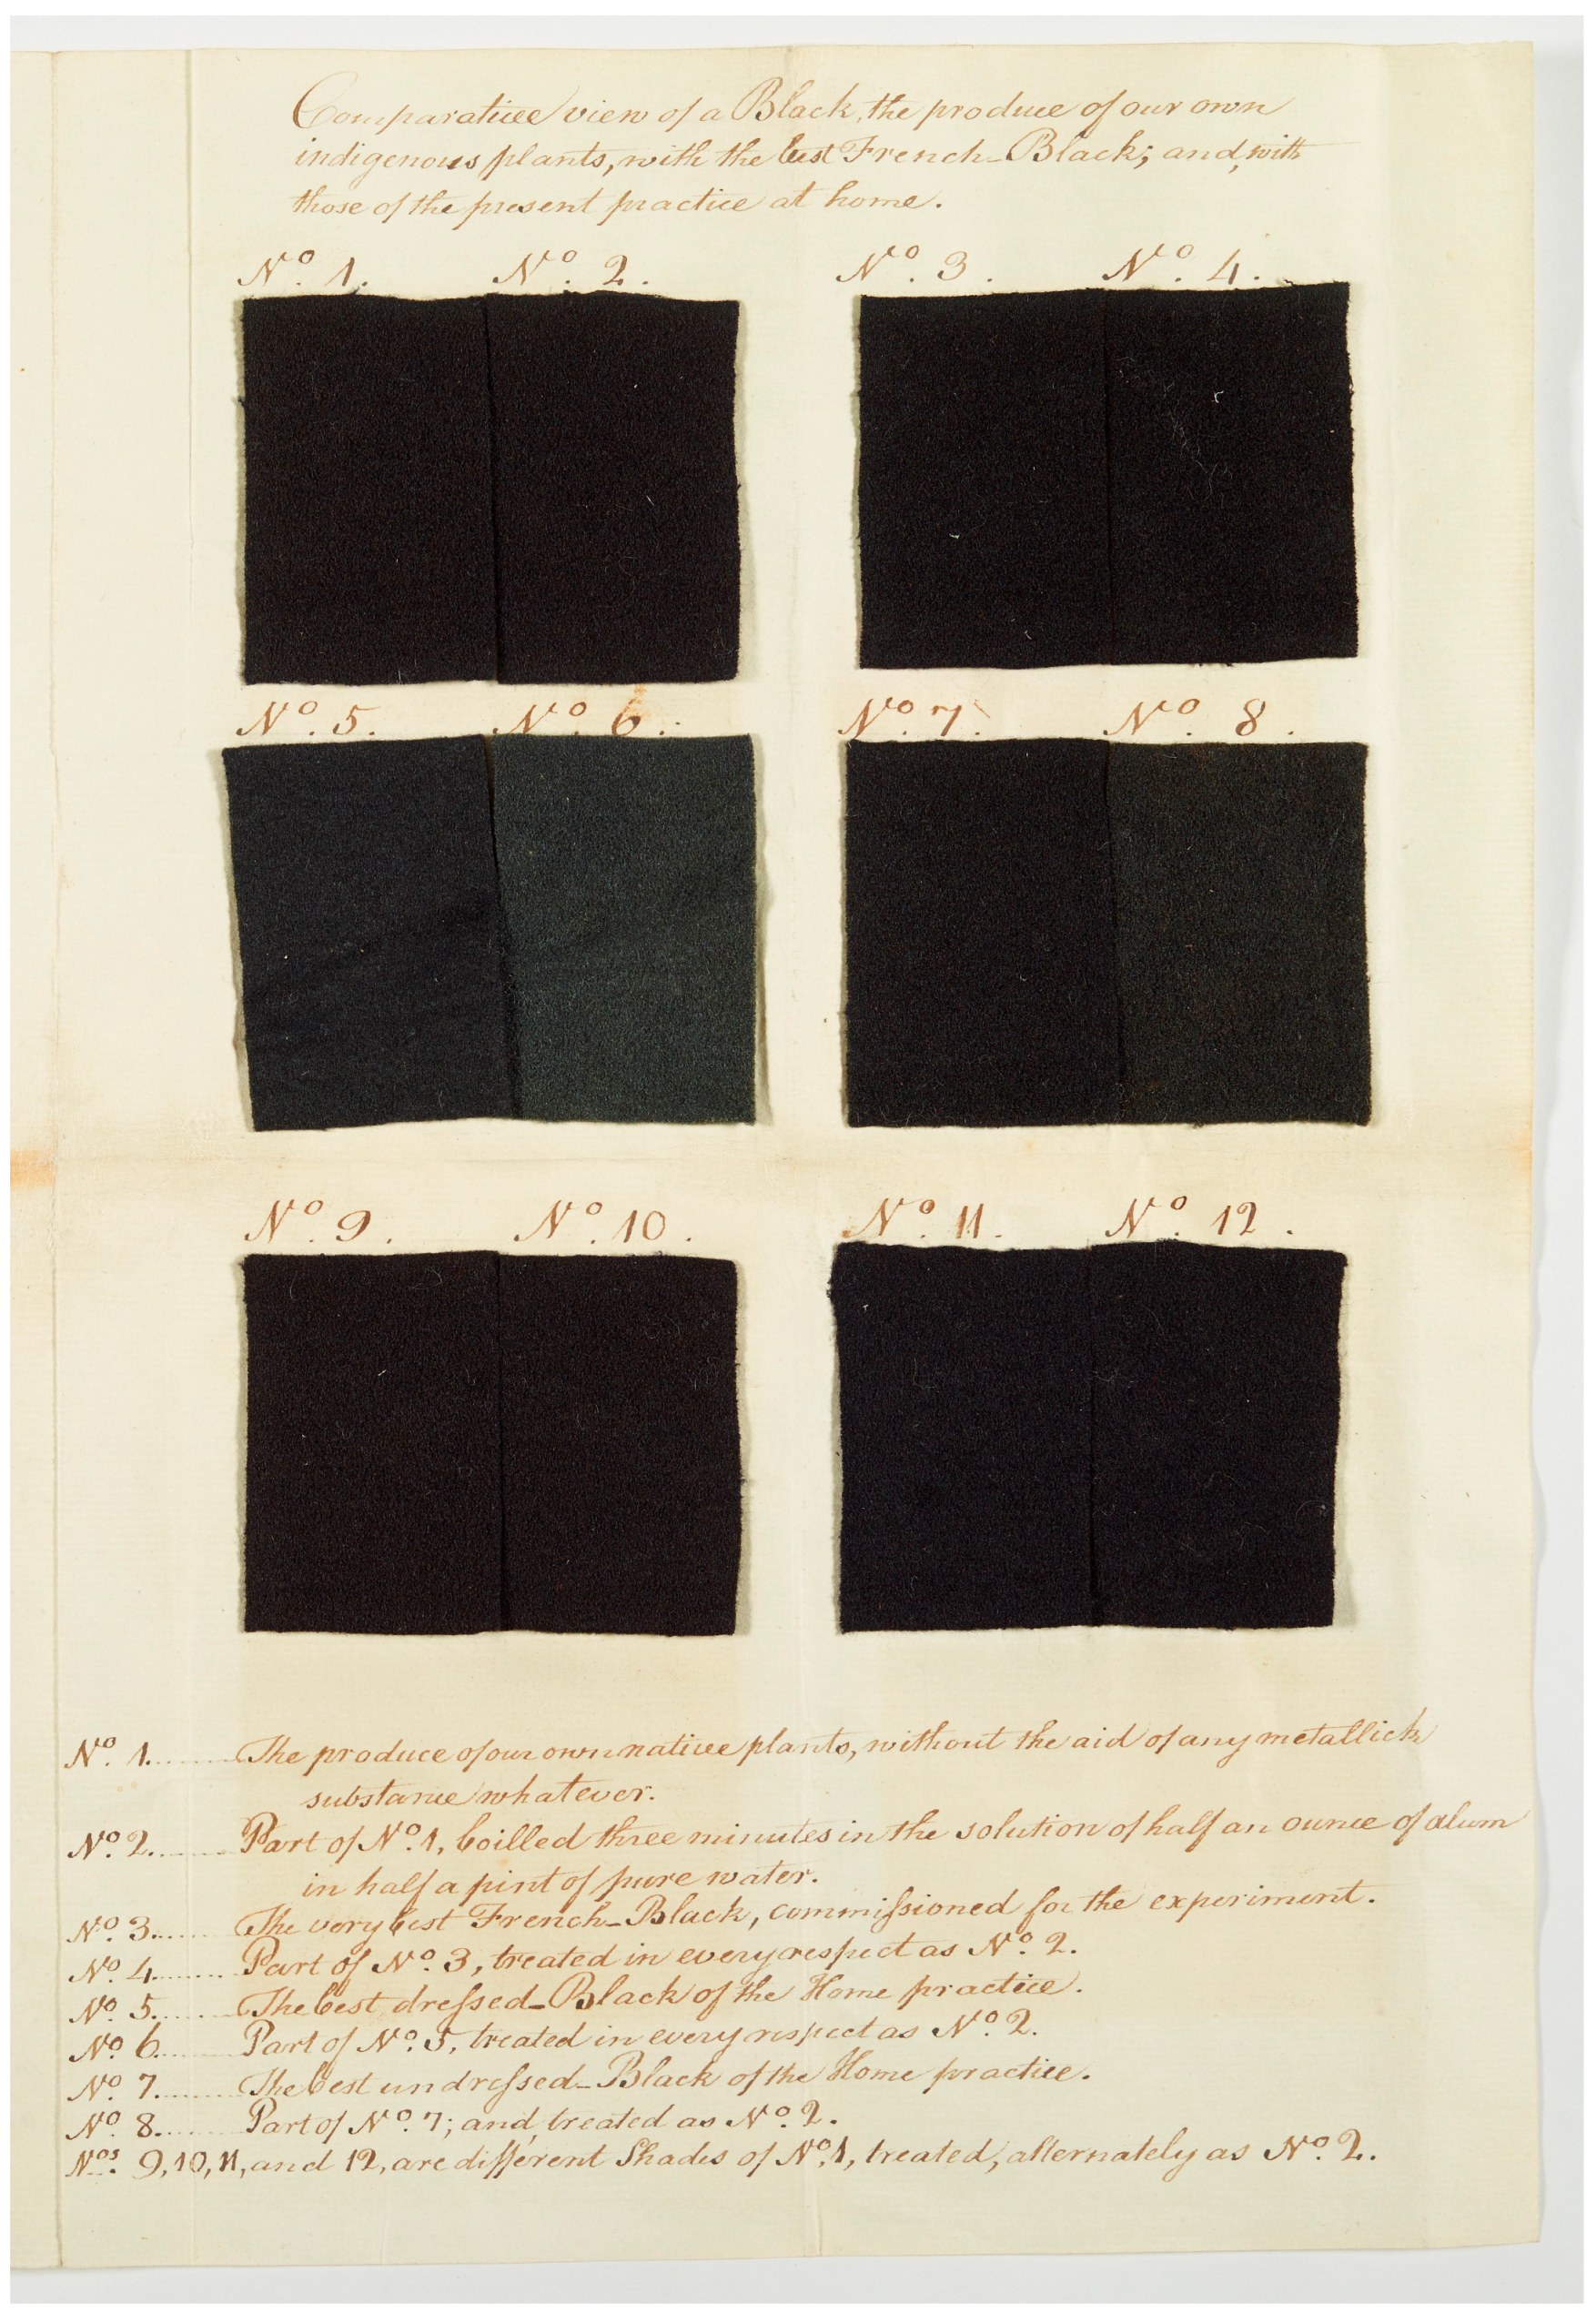 Comparative view of a Black, the produce of our own
indigenous plants, with the best French-Black; and, with
those of the present practice at home.
Nº. 1. Nº. 2. Nº. 3. Nº. 4.
Nº. 5. Nº. 6. Nº. 7. Nº. 8.
Nº. 9. Nº. 10. Nº. 11. Nº. 12.
Nº. 1........The produce of our own native plants, without the aid of any metallick
substance whatever.
Nº. 2........Part of Nº. 1, boilled three minutes in the solution of half an ounce of alum
in half a pint of pure water.
Nº. 3........The very best French-Black, commiſsioned for the experiment.
Nº. 4........Part of Nº. 3, treated in every respect as Nº. 2.
Nº. 5........The best dreſsed-Black of the Home practice.
Nº. 6........Part of Nº. 5, treated in every respect as Nº. 2.
Nº. 7........The best undreſsed-Black of the Home practice.
Nº. 8........Part of Nº. 7; and, treated as Nº. 2.
Nos. 9, 10, 11, and 12, are different Shades of Nº. 1, treated, alternately as Nº. 2.